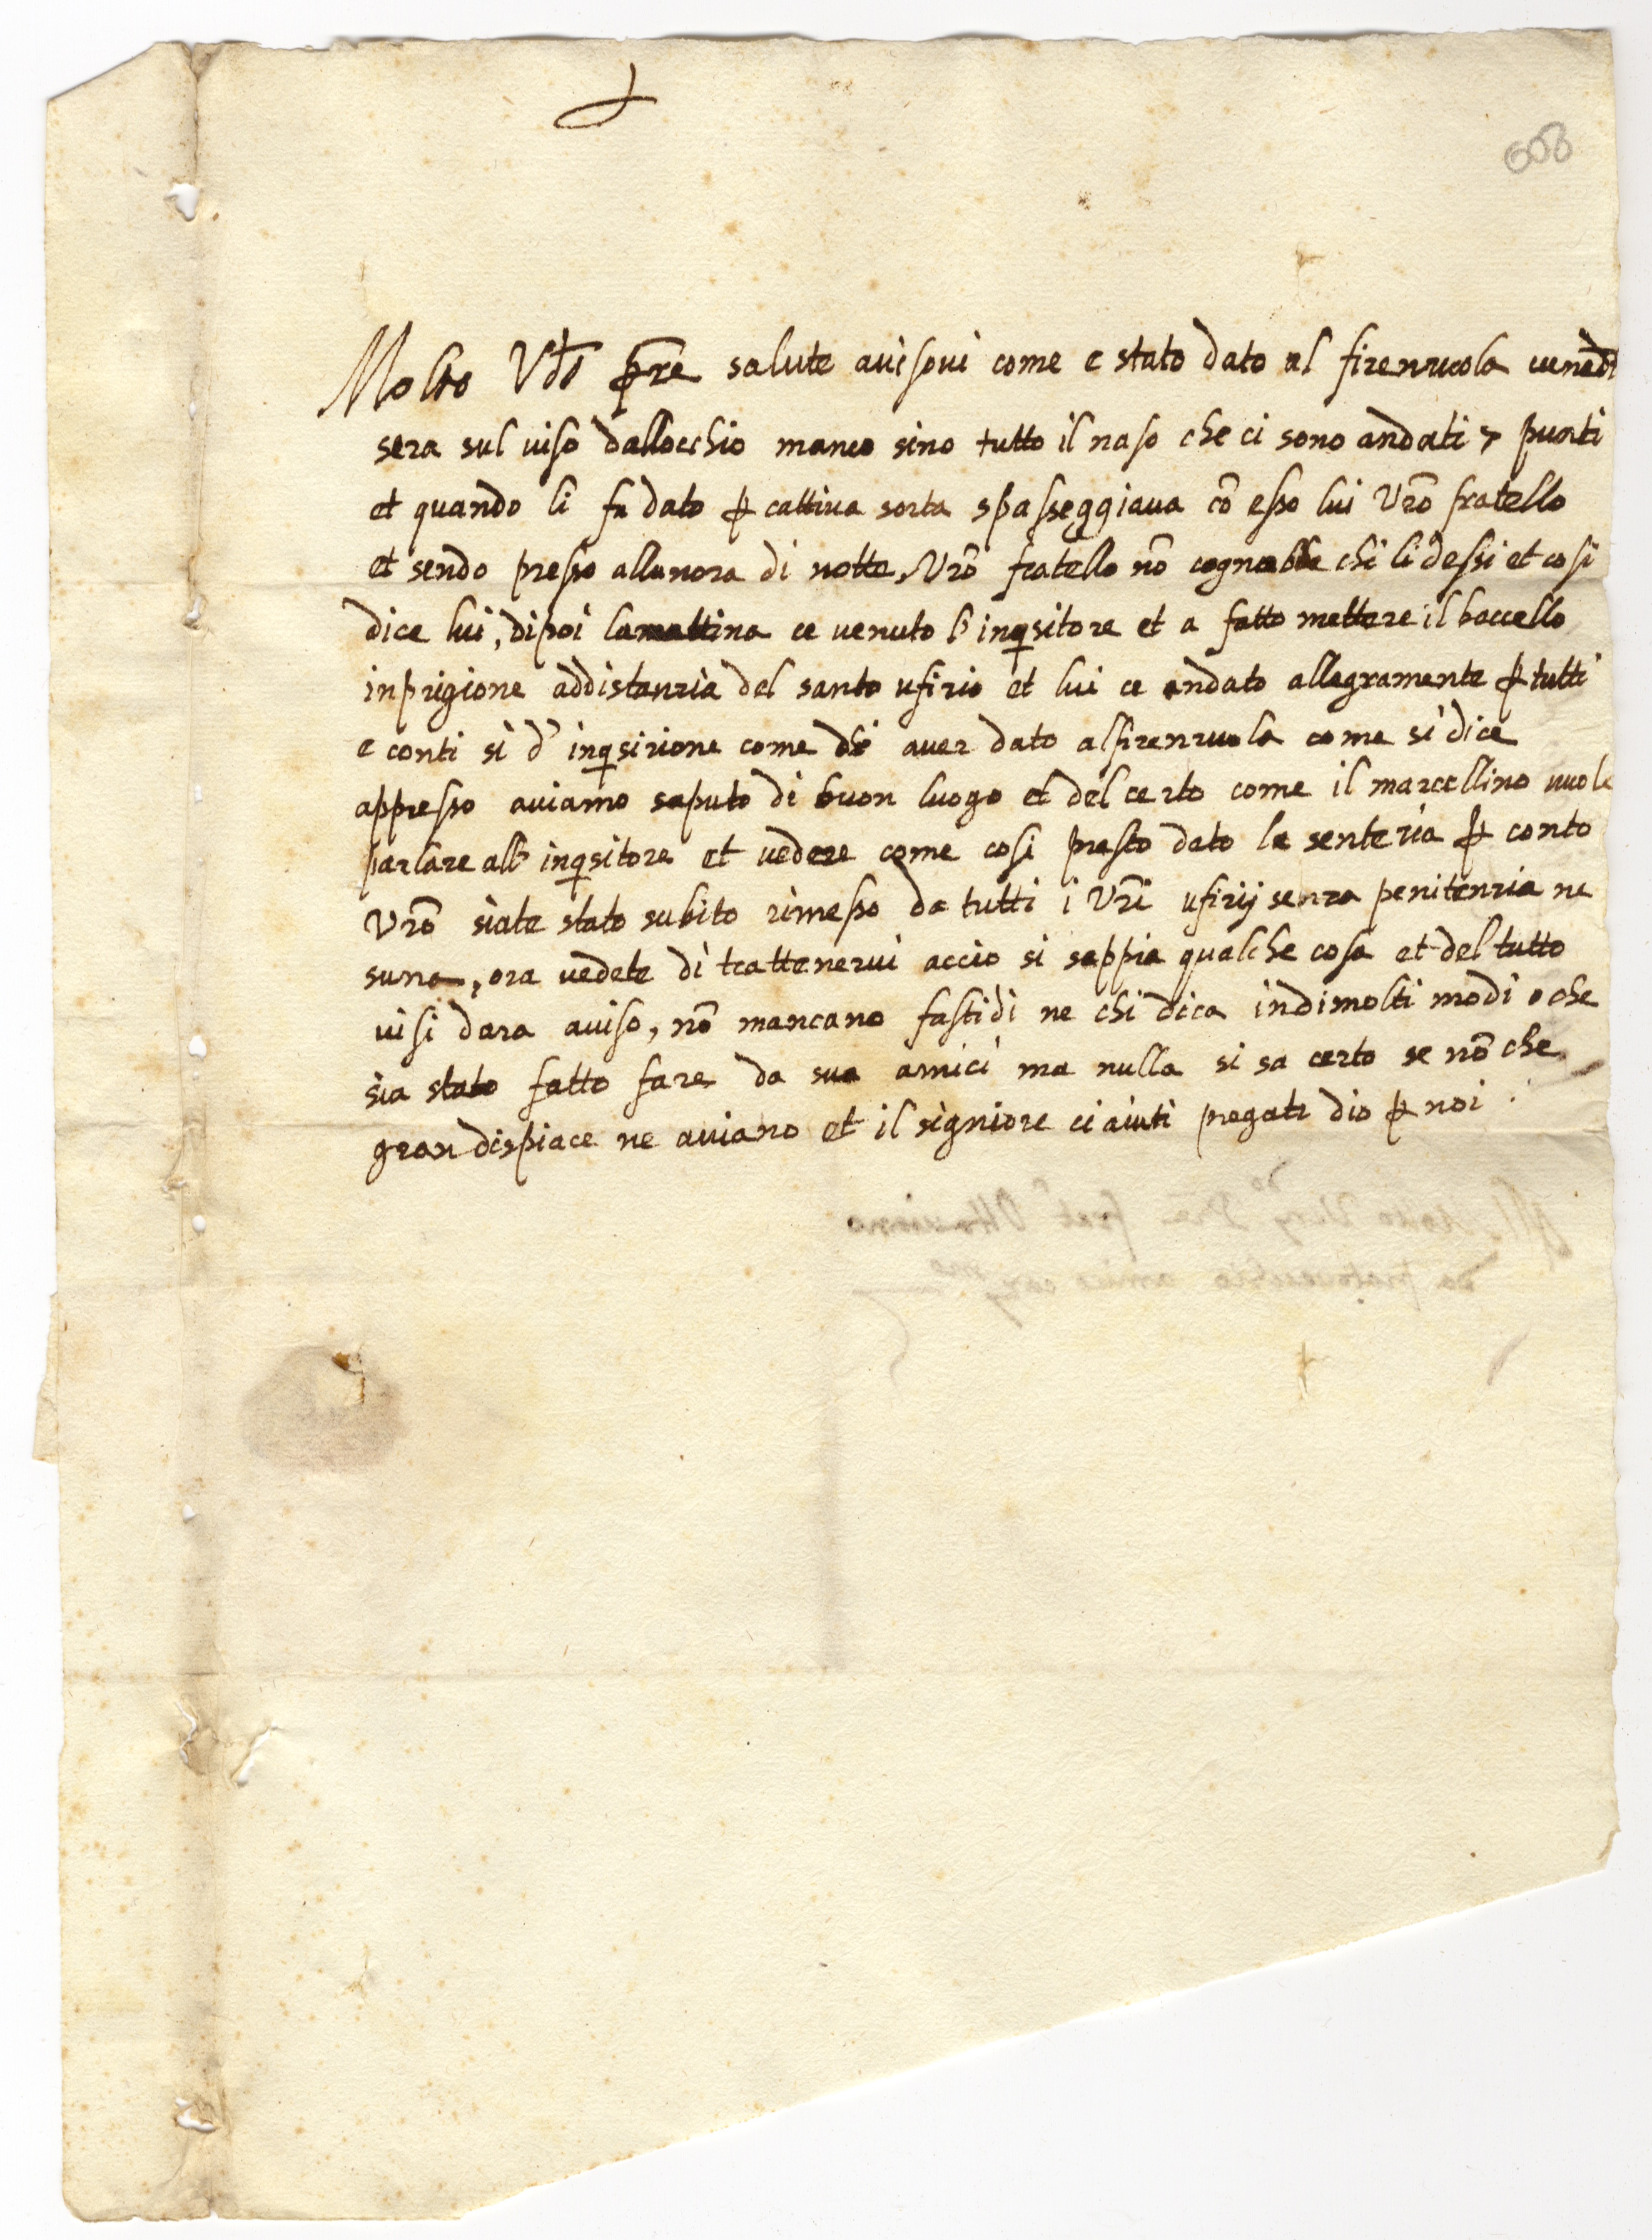 608
Molto Vdo pre salute avisovi come e stato dato al firenzuola venedi
sera sul uiso dallocchio manco sino tutto il naso che ci sono andati 7 punti
et quando li fu dato p cattiua sorta spasseggiaua cō esso lui Vrō fratello
et sendo presso allunora di notte, Vrō fratello nō cognobbe chi li dessi et cosi
dice lui, dipoi lamattina ce uenuto l'inqsitore et a fatto mettere il baccello
inprigione addistanzia del santo ufizio et lui ce andato allegramente p tutti
e conti si d'inqsizione come di auer dato alfirenzuola come si dice
appresso auiamo saputo di buon luogo et del certo come il marcellino uuole
parlare all'inqsitore et uedere come cosi presto dato la sentēzia p conto
Vrō siate stato subito rimesso da tutti i Vrī ufizij senza penitenzia ne
suna, ora uedete di trattenerui accio si sappia qualche cosa et del tutto
ui si dara auiso, nō mancano fastidi ne chi dica indimolti modi o che
sia stato fatto fare da sua amici ma nulla si sa certo se nō che
gran dispiace ne auiano et il signiore ci aiuti pregate dio p noi